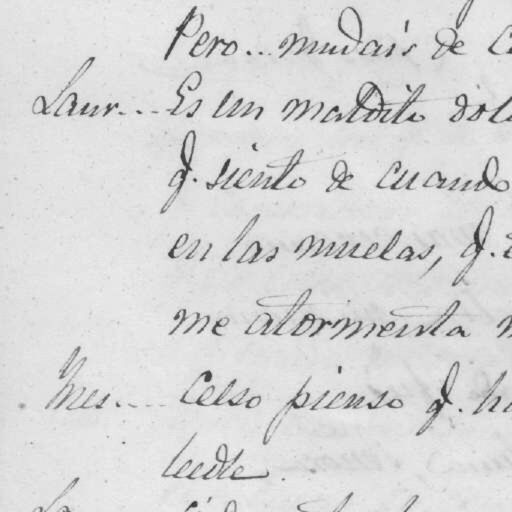 Pero... mudais de
Laur... Es un maldito
q. siento de cuando
en las muelas, q.
me atormenta
Ines... Celso pienso q.